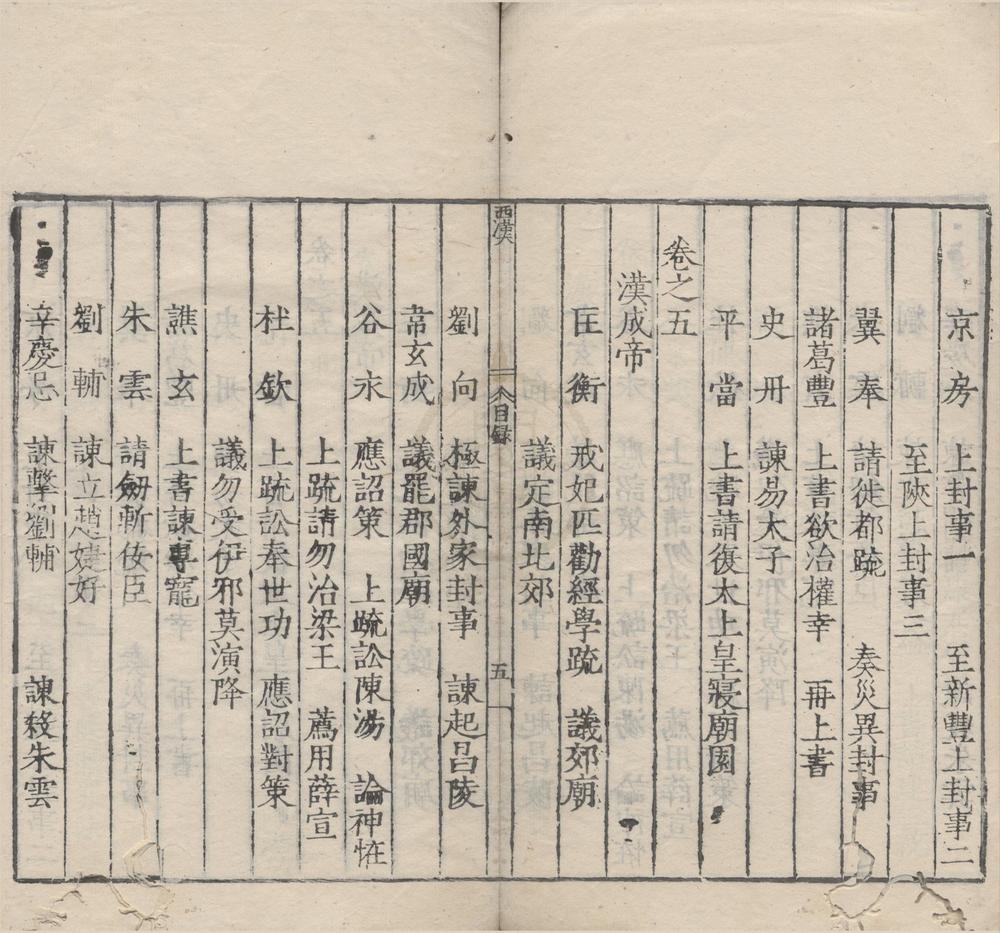 京房 上封事一 至新豐上封事二
至陝上封事三
翼奉 請徙都疏 奏災異封事
諸葛豐 上書欲治權幸 再上書
史丹 諫易太子
平當 上書請復太上皇寢廟園
卷之五
漢成帝
匡衡 戒妃匹勸經學疏 議郊廟
議定南北郊
劉向 極諫外家封事 諫起昌陵
西漢 目録 五
韋玄成 議罷郡國廟
谷永 應詔策 上疏訟陳湯 論神恠
上疏請勿治梁王 薦用薛宣
杜欽 上疏訟奉世功 應詔對策
議勿受伊邪莫演降
譙玄 上書諫專寵
朱雲 請劒斬佞臣
劉輔 諫立趙婕妤
辛慶忌 諫擊劉輔 諫殺朱雲